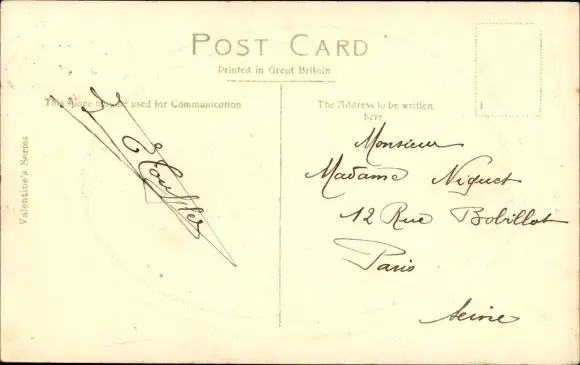 POST CARD
Printed in Great Britain
This Space may be used for Communication
The Address to be written
here
Valentine's Series
Monsieur
Madame Niquet
12 Rue Bobillot
Paris
Seine